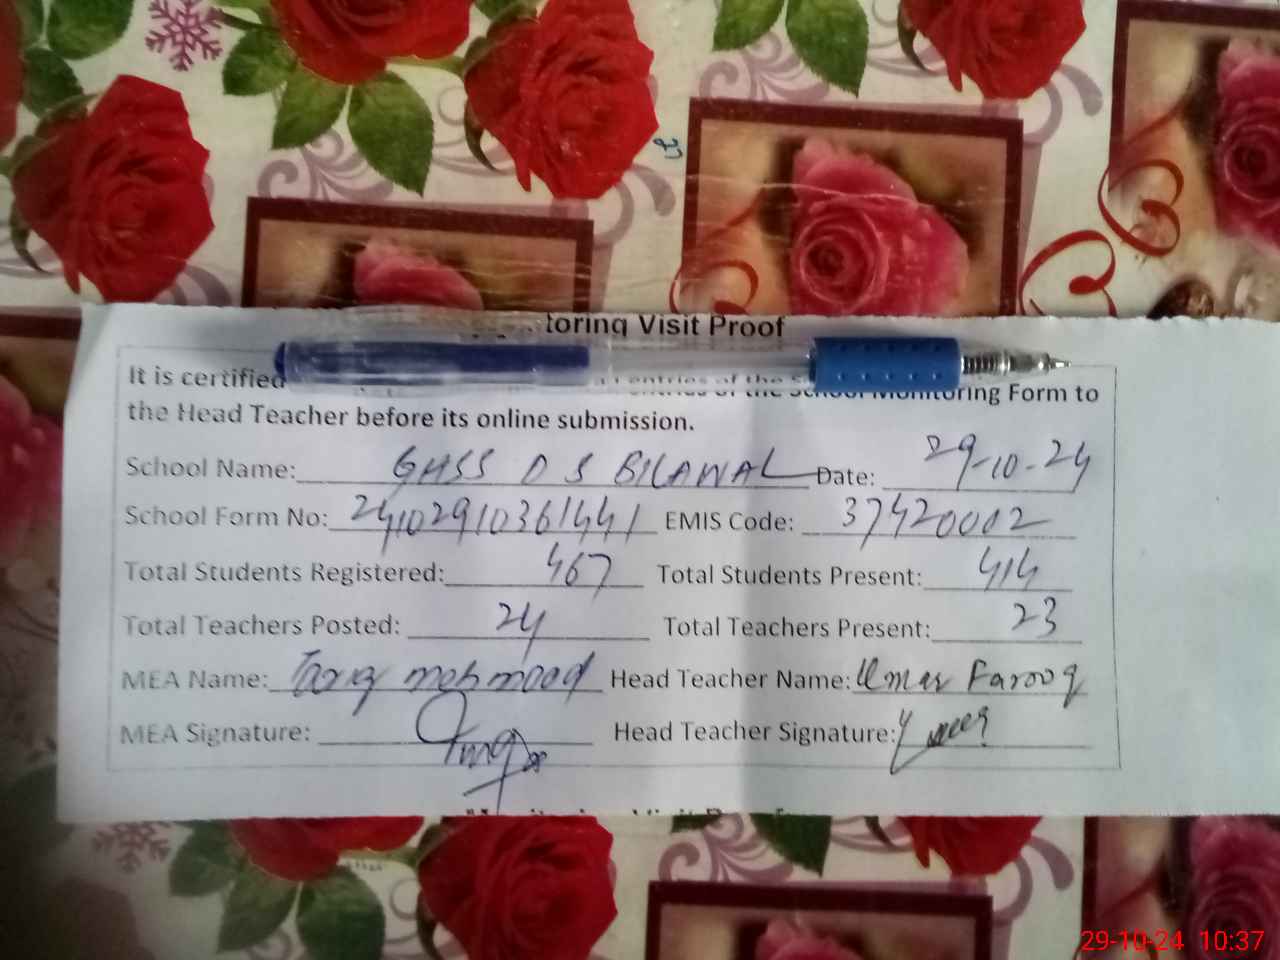 toring Visit Proof
It is certified entries of the School Monitoring Form to
the Head Teacher before its online submission.
School Name: GHSS D S BILAWAL Date: 29-10-24
School Form No: 24102910361441 EMIS Code: 37420002
Total Students Registered: 467 Total Students Present: 414
Total Teachers Posted: 24 Total Teachers Present: 23
MEA Name: Tariq mehmood Head Teacher Name: Umar Farooq
MEA Signature: Head Teacher Signature:
29-10-24 10:37